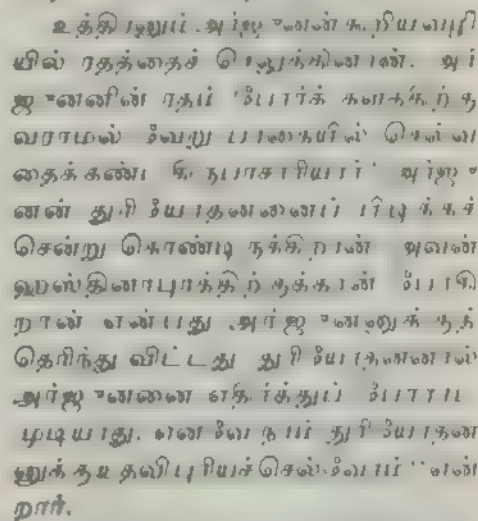 உத்திரனும் அர்ஜுனன் கூறியவழி
யில் ரதத்தைச் செலுத்தினான். அர்
ஜுனனின் ரதம் போர்க் களத்திற்கு
வராமல் வேறு பாதையில் செல்வ
தைக்கண்ட கிருபாசாரியார் "அர்ஜு
னன் துரியோதனனைப் பிடிக்கச்
சென்று கொண்டிருக்கிறான் அவன்
ஹஸ்தினாபுரத்திற்குத்தான் போகி
றான் என்பது அர்ஜுனனுக்குத்
தெரிந்து விட்டது துரியோதனனால்
அர்ஜுனனை எதிர்த்துப் போராட
முடியாது. எனவே நாம் துரியோதன
னுக்குஉதவிபுரியச்செல்வோம்" என்
றார்.